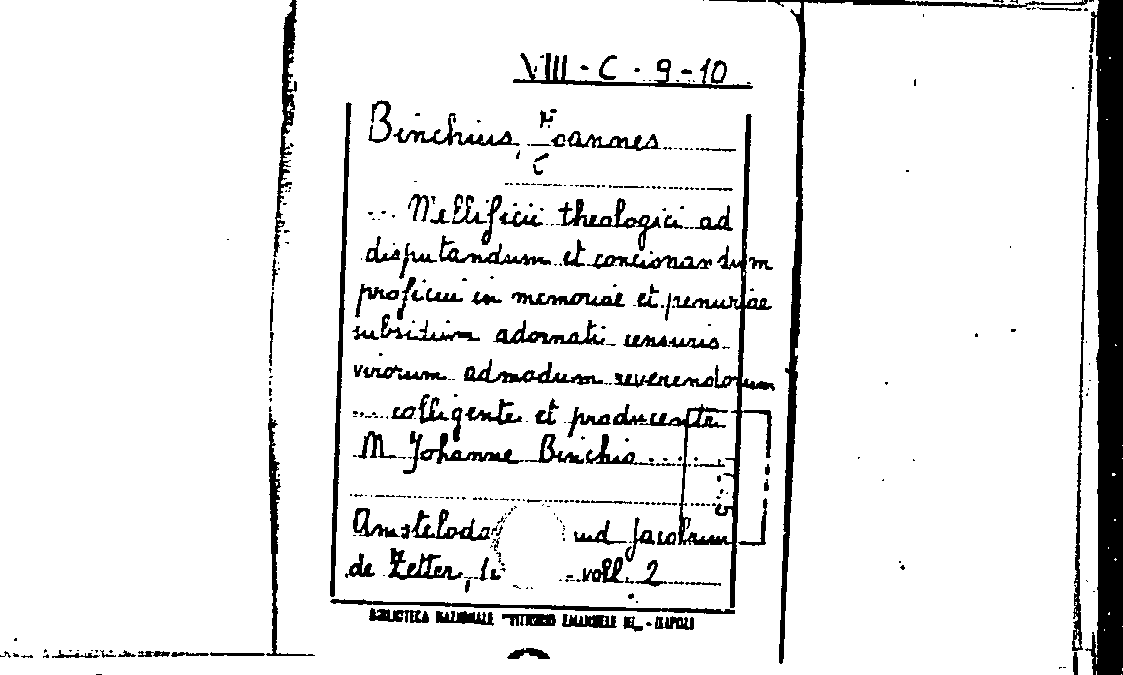 VIII - C - 9 - 10
Binchius, Joannes
... Mellificii theologici ad
disputandum et concionandum
proficui in memoriae et penuriae
subsidium adornati censuris
virorum admodum reverendorum
... colligente et producente
M Johanne Binchio .....
Amsteloda ud Jacobum
de Zetter, voll. 2
BIBLIOTECA NAZIONALE "VITTORIO EMANUELE III" - NAPOLI